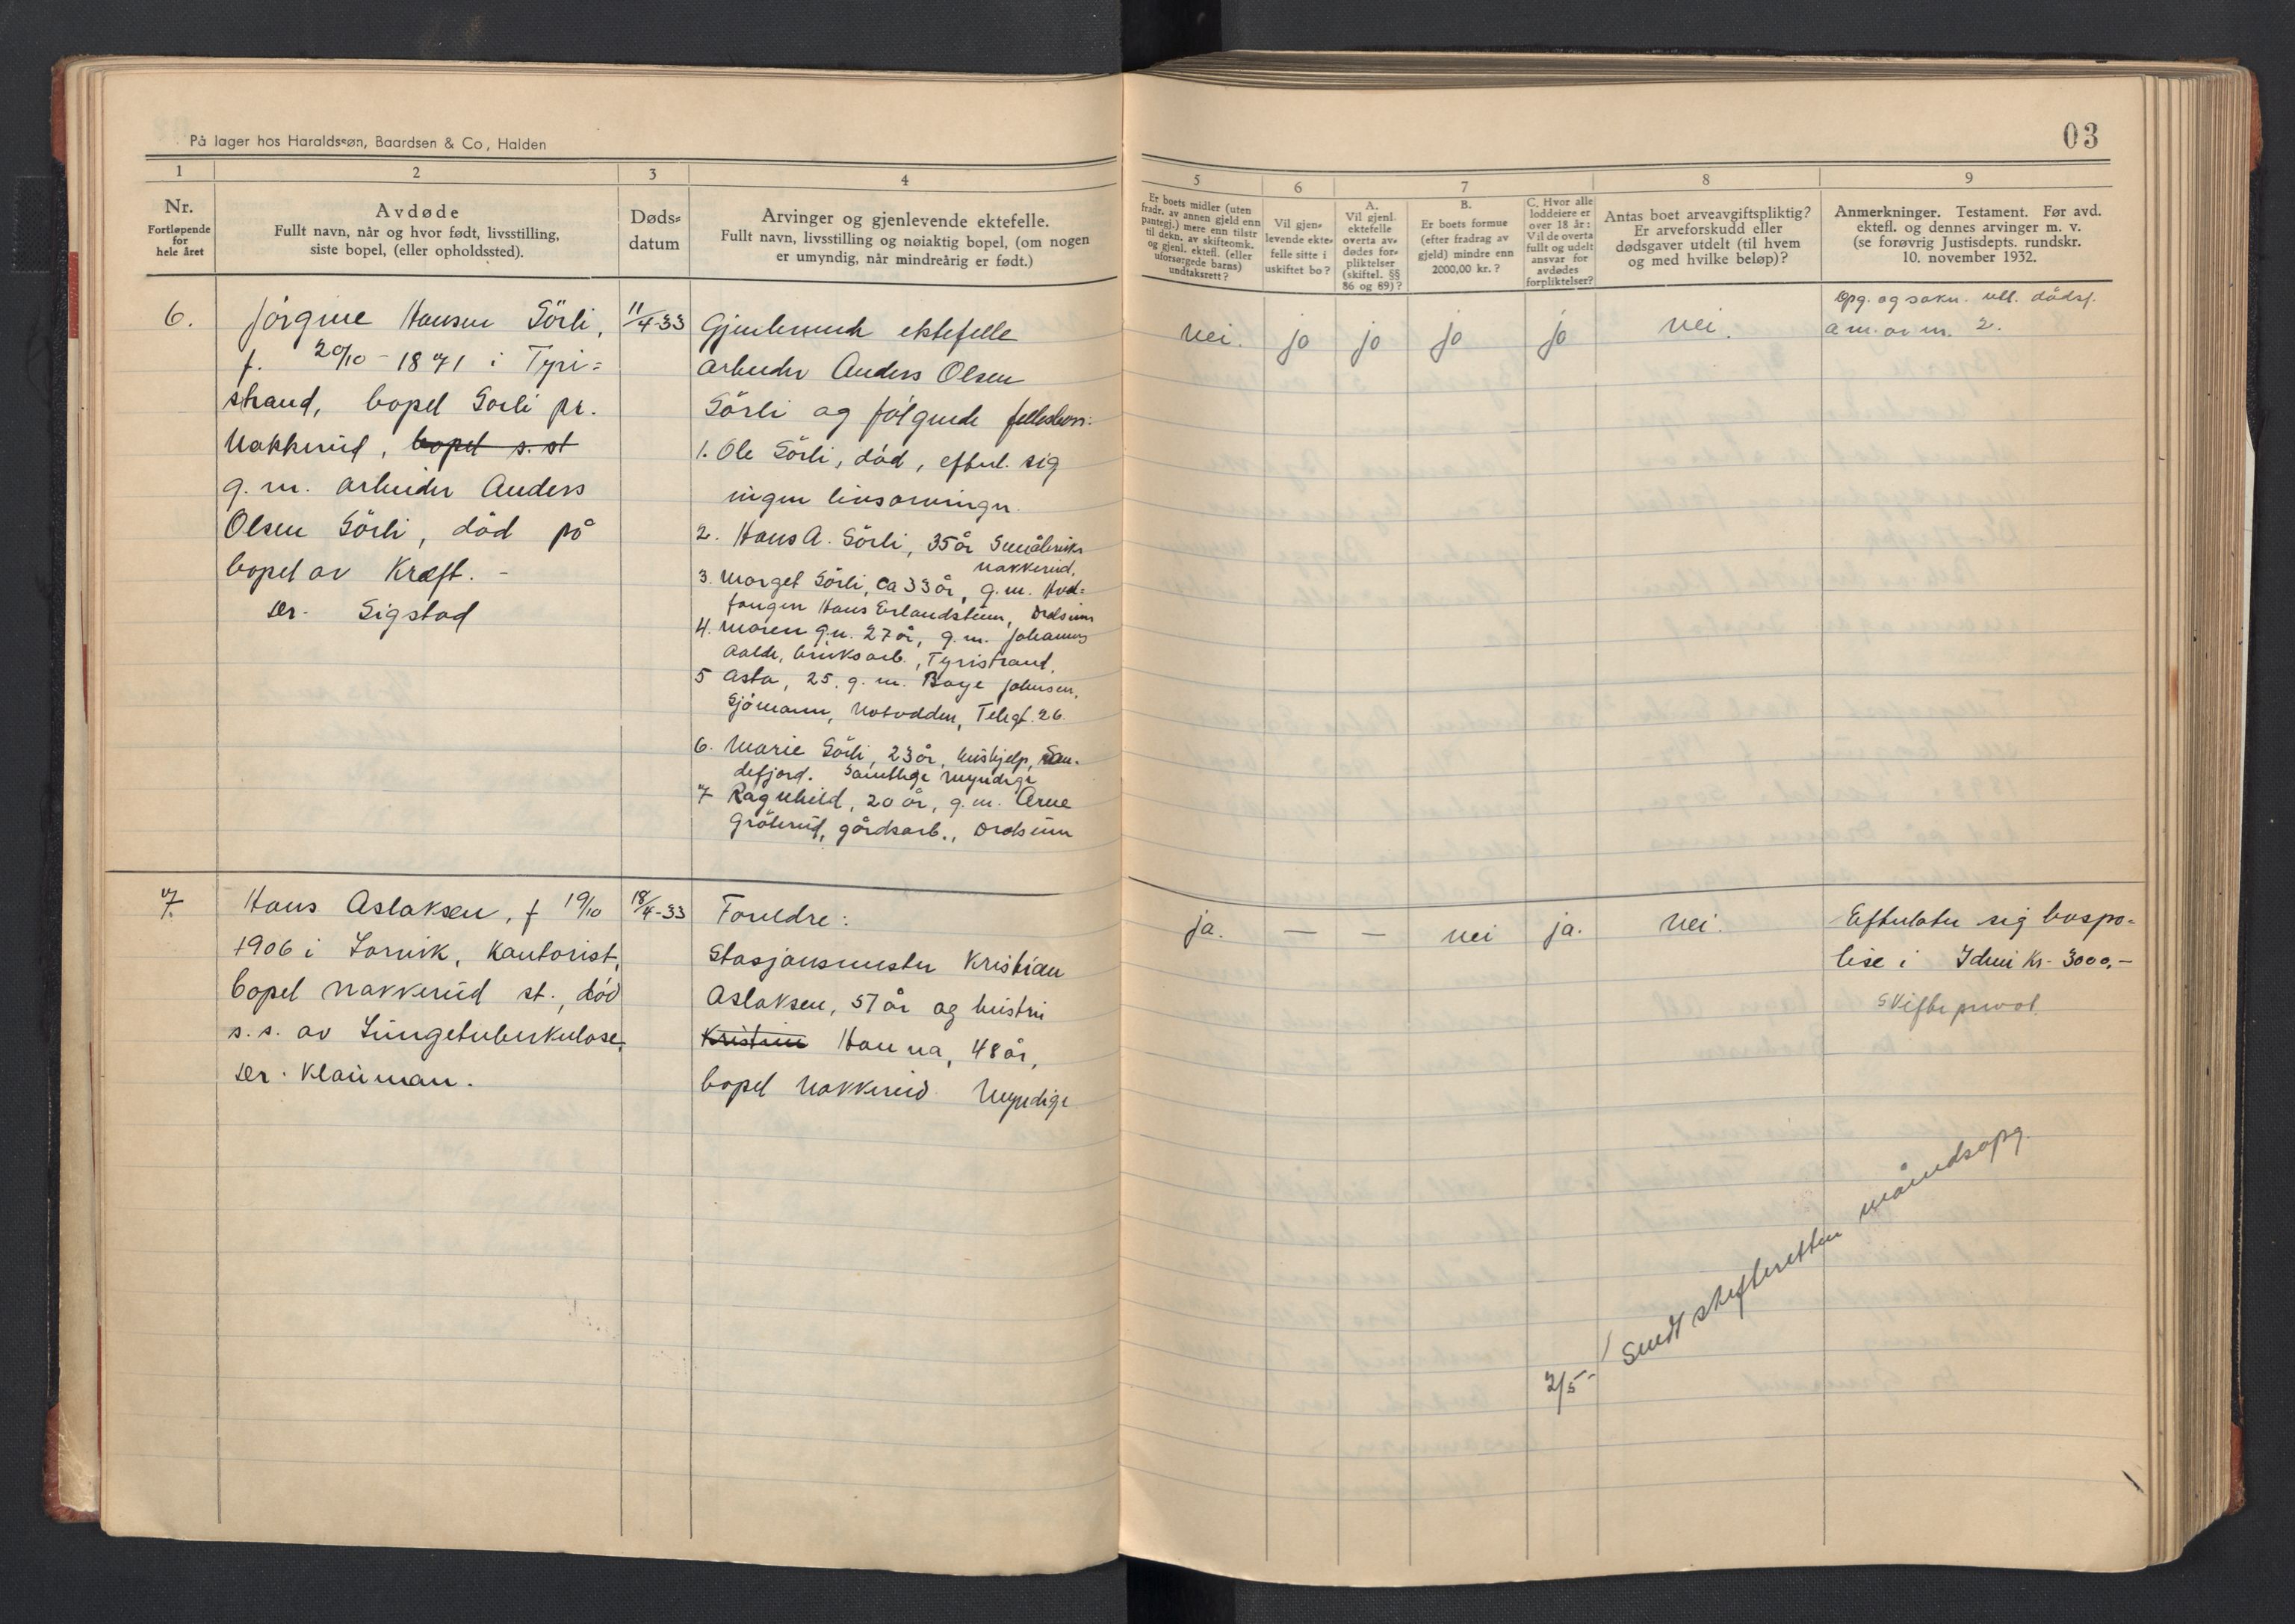 På lager hos Haraldssøn, Baardsen & Co, Halden
03
1
2
3
4
5
6
7
8
9
Nr.
Fortløpende
for
hele året
Avdøde
Fullt navn, når og hvor født, livsstilling,
siste bopel, (eller opholdssted).
Døds-
datum
Arvinger og gjenlevende ektefelle.
Fullt navn, livsstilling og nøiaktig bopel, (om nogen
er umyndig, når mindreårig er født.)
Er boets midler (uten
fradr. av annen gjeld enn
pantegj.) mere enn tilstr.
til dekn. av skifteomk.
og gjenl. ektefl. (eller
uforsørgede barns)
undtaksrett?
Vil gjen-
levende ekte-
felle sitte i
uskiftet bo?
A.
Vil gjenl.
ektefelle
overta av-
dødes for-
pliktelser
(skiftel. §§
86 og 89)?
B.
Er boets formue
(efter fradrag av
gjeld) mindre enn
2000,00 kr.?
C. Hvor alle
loddeiere er
over 18 år:
Vil de overta
fullt og udelt
ansvar for
avdødes
forpliktelser?
Antas boet arveavgiftspliktig?
Er arveforskudd eller
dødsgaver utdelt (til hvem
og med hvilke beløp)?
Anmerkninger. Testament. Før avd.
ektefl. og dennes arvinger m. v.
(se forøvrig Justisdepts. rundskr.
10. november 1932.
6.
Jörgine Hansen Sörli,
f. 20/10 - 1871 i Tyri=
strand, bopel Sörli pr.
Nakkerud, bopel s. st
g. m. arbeider Anders
Olsen Sörli, död på
bopel av Kræft. -
Dr. Sigstad
11/4-33
Gjenlevende ektefelle
arbeider Anders Olsen
Sörli og fölgende fellesbarn:
1. Ole Sörli, död, efterl. sig
ingen livsarvinger.
2. Hans A. Sörli, 35 år Småbruker
Nakkerud.
3. Marget Sörli, ca 33 år, g. m. Hval=
fanger Hans Erlandsteen, Drolsum
4. Maren g.n. 27 år, g. m. Johannes
Aalde, bruksarb., Tyristrand.
5 Asta, 25, g. m. Børge Johnsen,
Sjömann, Notodden, Telegf. 26.
6. Marie Sörli, 23 år, hushjelp, San-
defjord. Samtlige myndige
7 Ragnhild, 20 år, g. m. Arne
Gröterud, gårdsarb., Drolsum
nei.
jo
jo
jo
jo
nei.
Opg. og søkn. vedl. dödsf.
anm. av nr. 2.
7.
Hans Aslaksen, f 19/10
1906 i Larvik, Kontorist,
bopel Nakkerud st., död
s. s. av Lungetuberkulose.
Dr. Klauman.
18/4-33
Foreldre:
Stasjonsmester Kristian
Aslaksen, 57 år og hustru
Kristine Hanna, 48 år,
bopel Nakkerud. Myndige
ja.
—
—
nei
ja.
nei.
Efterlater sig livspo-
lise i Idun Kr. 3000,-
Skifter privat.
2/5 - Sendt skifteretten månedsopg.